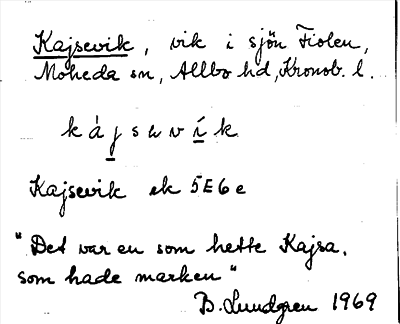 Kajsevik, vik i sjön Fiolen,
Moheda sn, Allbo hd, Kronob. l.
k á j s e v í k
Kajsevik ek 5E6e
"Det var en som hette Kajsa,
som hade marken"
B. Lundgren 1969